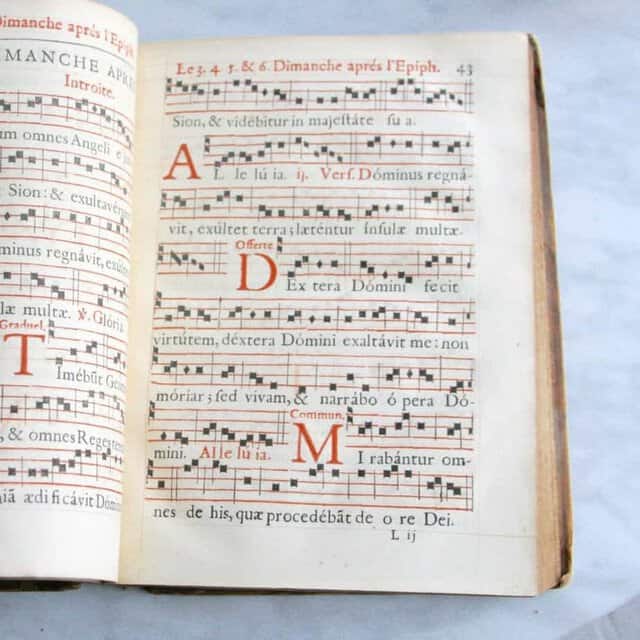 Dimanche aprés l'Epiph.
MANCHE APRE
Introite.
um omnes Angeli e
Sion: & exultavér
óminus regnávit, exúl
læ multæ. ℣. Glória
Graduel
TImébūt Ge
, & omnes Reges
niā ædificávit Dóm
Le 3. 4. 5. & 6. Dimanche aprés l'Epiph. 43
Sion, & vidébitur in majestáte su a.
AL le lú ia. ij. Vers. Dóminus regná
vit, exúltet terra; læténtur ínsulæ multæ.
Offerte
DEx tera Dómini fecit
virtútem, déxtera Dómini exaltávit me: non
móriar; sed vivam, & narrábo ó pera Dó-
mini. Al le lú ia.
Commun.
MI rabántur om-
nes de his, quæ procedébāt de o re Dei.
L ij